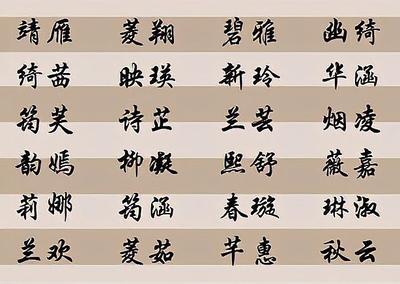 靖雁 菱翔 碧雅 幽绮
绮茜 映瑛 新玲 华涵
筠芙 诗芷 兰芸 烟凌
韵嫣 柳凝 熙舒 薇嘉
莉娜 筠涵 春璇 琳淑
兰欢 菱茹 芊惠 秋云